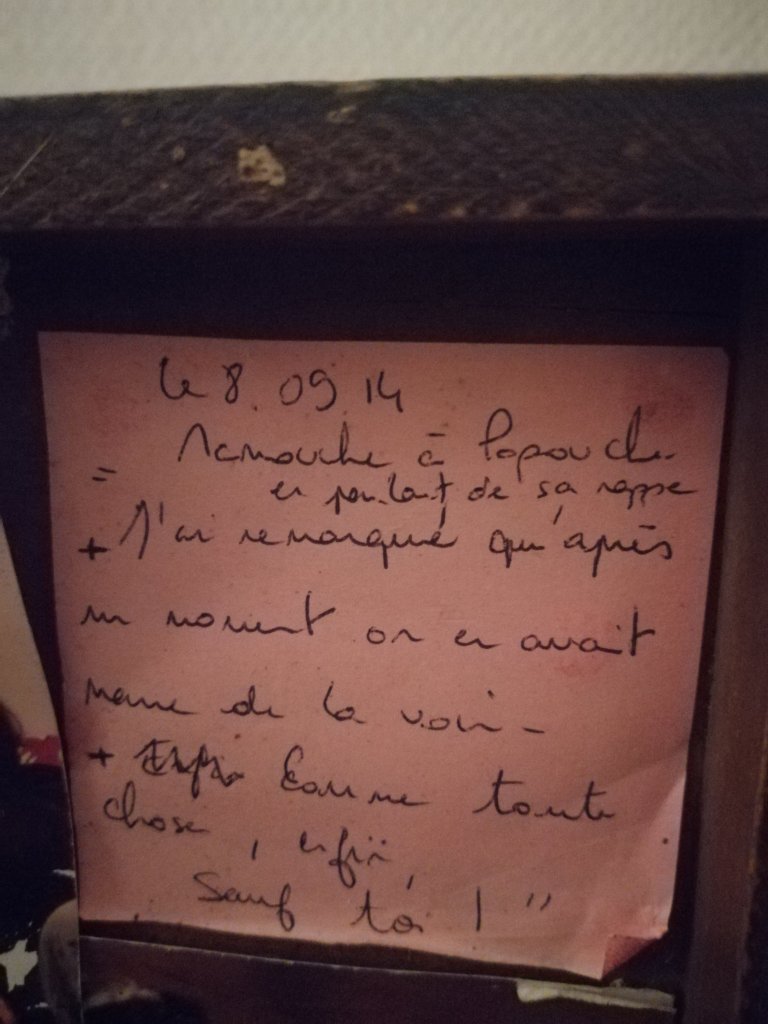 le 8.09 14
= Mamouche à Papouche
en parlant de sa nappe
+ J'ai remarqué qu'après
un moment on en avait
marre de la voir -
+ Comme toute
chose, enfin,
sauf toi ! "